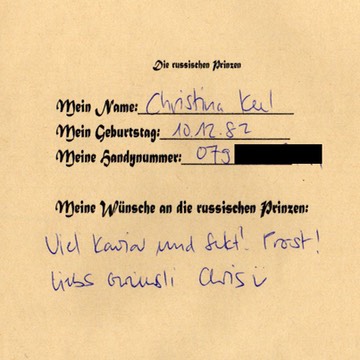 Die russischen Prinzen
Mein Name: Christina Keel
Mein Geburtstag: 10.12.82
Meine Handynummer: 079
Meine Wünsche an die russischen Prinzen:
Viel Kaviar und Sekt! Prost!
Liebs Grüessli Chrisi